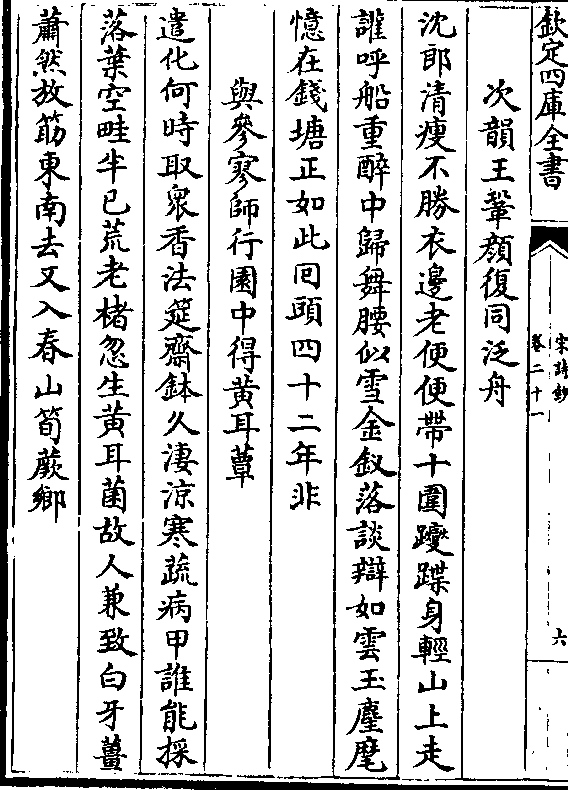 欽定四庫全書
宋詩鈔
卷二十一
六
次韻王鞏顔復同泛舟
沈郎清瘦不勝衣邊老便便帶十圍躞蹀身輕山上走
讙呼船重醉中歸舞腰似雪金釵落談辯如雲玉麈麾
憶在錢塘正如此囘頭四十二年非
與參寥師行園中得黃耳蕈
遣化何時取衆香法筵齋鉢久淒涼寒蔬病甲誰能採
落葉空畦半已荒老楮忽生黃耳菌故人兼致白牙薑
蕭然放筯東南去又入春山筍蕨鄉